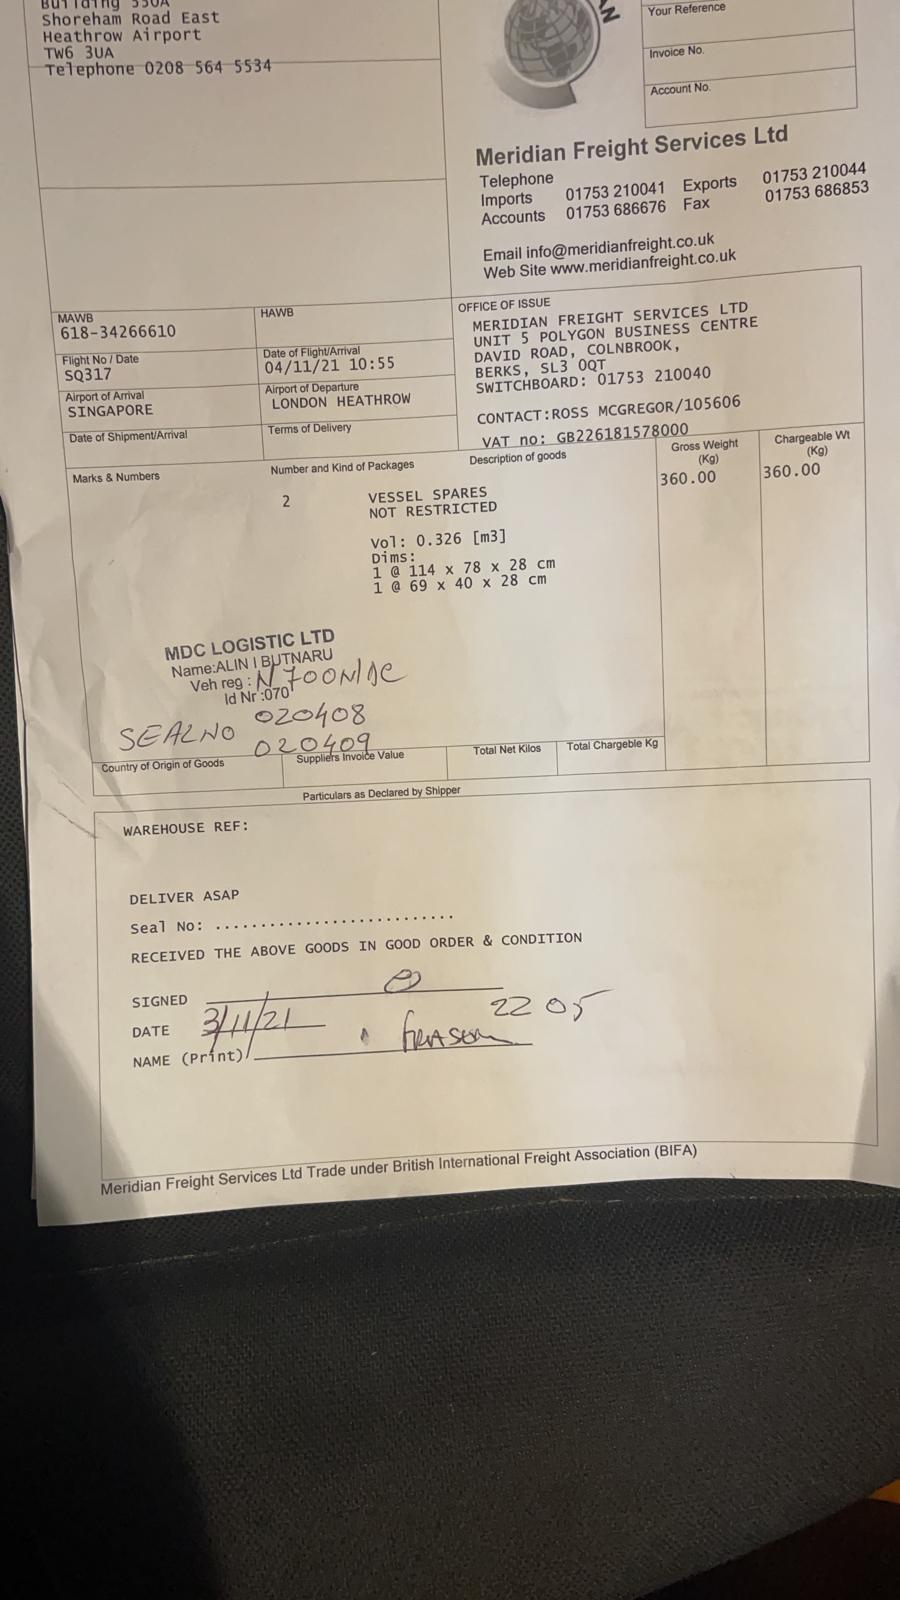 Building 550A
Shoreham Road East
Heathrow Airport
TW6 3UA
Telephone 0208 564 5534
AN
Your Reference
Invoice No.
Account No.
Meridian Freight Services Ltd
Telephone
Imports 01753 210041 Exports 01753 210044
Accounts 01753 686676 Fax 01753 686853
Email info@meridianfreight.co.uk
Web Site www.meridianfreight.co.uk
MAWB
618-34266610
HAWB
Flight No / Date
SQ317
Date of Flight/Arrival
04/11/21 10:55
Airport of Arrival
SINGAPORE
Airport of Departure
LONDON HEATHROW
Date of Shipment/Arrival
Terms of Delivery
OFFICE OF ISSUE
MERIDIAN FREIGHT SERVICES LTD
UNIT 5 POLYGON BUSINESS CENTRE
DAVID ROAD, COLNBROOK,
BERKS, SL3 0QT
SWITCHBOARD: 01753 210040
CONTACT:ROSS MCGREGOR/105606
VAT no: GB226181578000
Marks & Numbers
Number and Kind of Packages
Description of goods
Gross Weight
(Kg)
Chargeable Wt
(Kg)
2
VESSEL SPARES
NOT RESTRICTED
360.00
360.00
Vol: 0.326 [m3]
Dims:
1 @ 114 x 78 x 28 cm
1 @ 69 x 40 x 28 cm
MDC LOGISTIC LTD
Name:ALIN I BUTNARU
Veh reg :
Id Nr :070
SEALNO 020408
020409
Country of Origin of Goods
Suppliers Invoice Value
Total Net Kilos
Total Chargeble Kg
Particulars as Declared by Shipper
WAREHOUSE REF:
DELIVER ASAP
Seal No: ...........................
RECEIVED THE ABOVE GOODS IN GOOD ORDER & CONDITION
SIGNED
DATE 3/11/21 22 05
NAME (Print)
Meridian Freight Services Ltd Trade under British International Freight Association (BIFA)